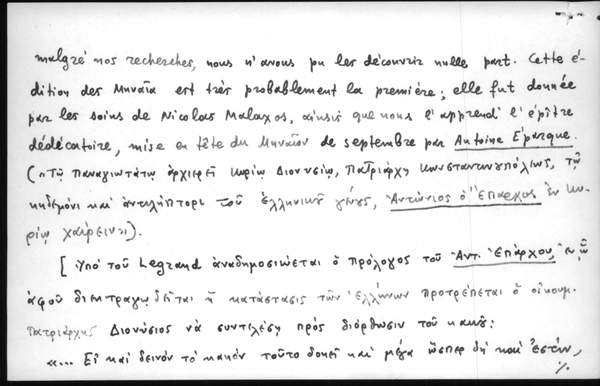 malgré nos recherches, nous n'avons pu les découvrir nulle part. Cette é-
dition des Μηναῖα est très probablement la première; elle fut donnée
par les soins de Nicolas Malaxos, ainsi que nous l'apprend l'épître
dédicatoire, mise en tête du Μηναῖον de septembre par Antoine Eparque.
(«Τῷ παναγιωτάτῳ ἀρχιερεῖ κυρίῳ Διονυσίῳ, Πατριάρχῃ Κωνσταντινουπόλεως, τῷ
κηδεμόνι καὶ ἀντιλήπτορι τοῦ ἑλληνικοῦ γένους, Ἀντώνιος ὁ Ἔπαρχος ἐν Κυ-
ρίῳ χαίρειν»).
[Ὑπὸ τοῦ Legrand ἀναδημοσιεύεται ὁ πρόλογος τοῦ Ἀντ. Ἐπάρχου, ἐν ᾧ
ἀφοῦ διεκτραγῳδεῖται ἡ κατάστασις τῶν Ἑλλήνων προτρέπεται ὁ οἰκουμ.
Πατριάρχης Διονύσιος νὰ συντελέσῃ πρὸς διόρθωσιν τοῦ κακοῦ:
«... Εἰ καὶ δεινὸν τὸ κακὸν τοῦτο δοκεῖ καὶ μέγα ὥσπερ δὴ καὶ ἐστίν,
./.